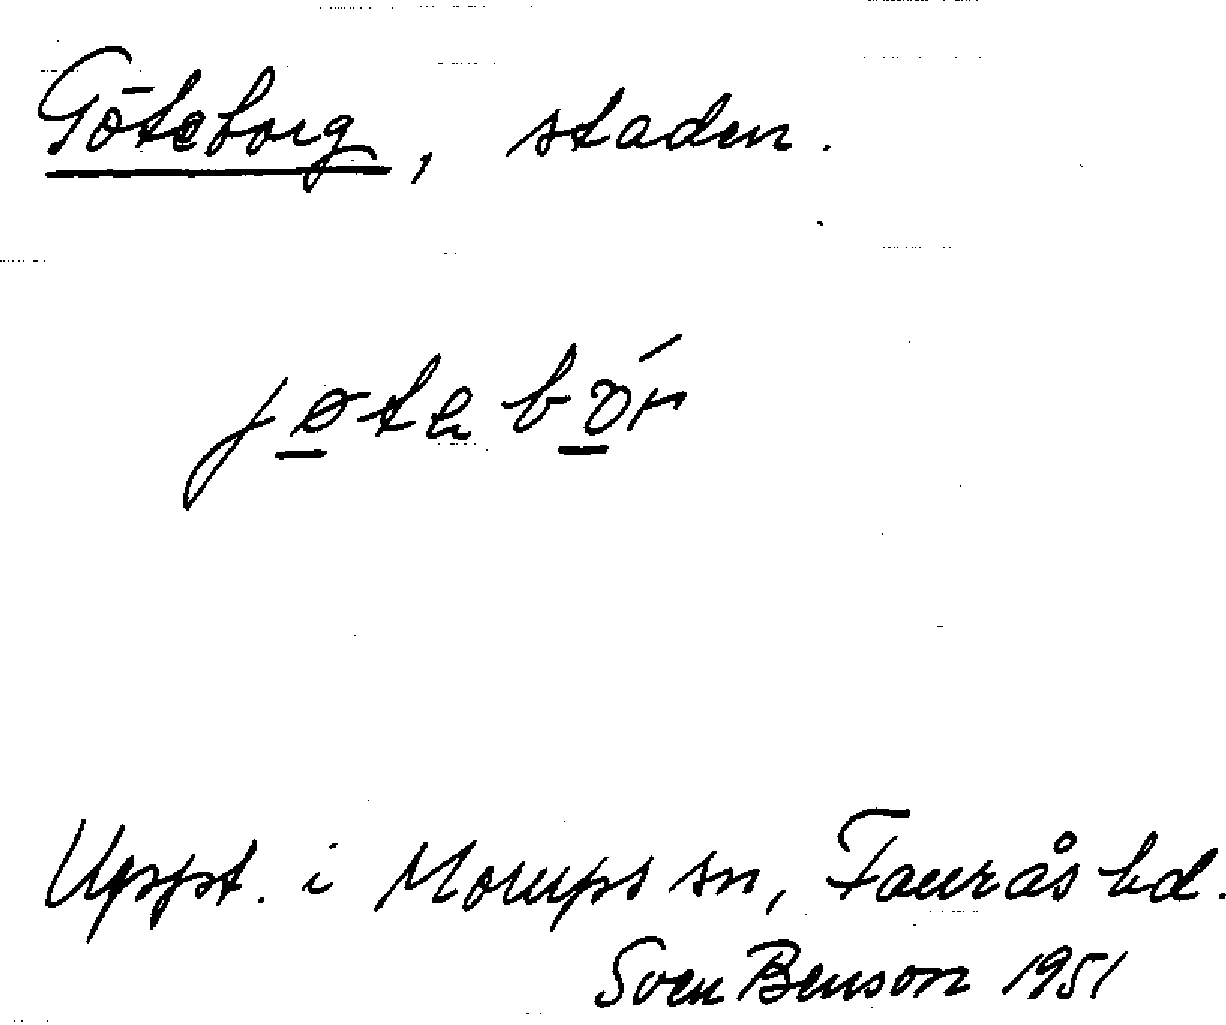 Göteborg, staden.
jøtabór
Uppt. i Morups sn, Faurås hd.
Sven Benson 1951